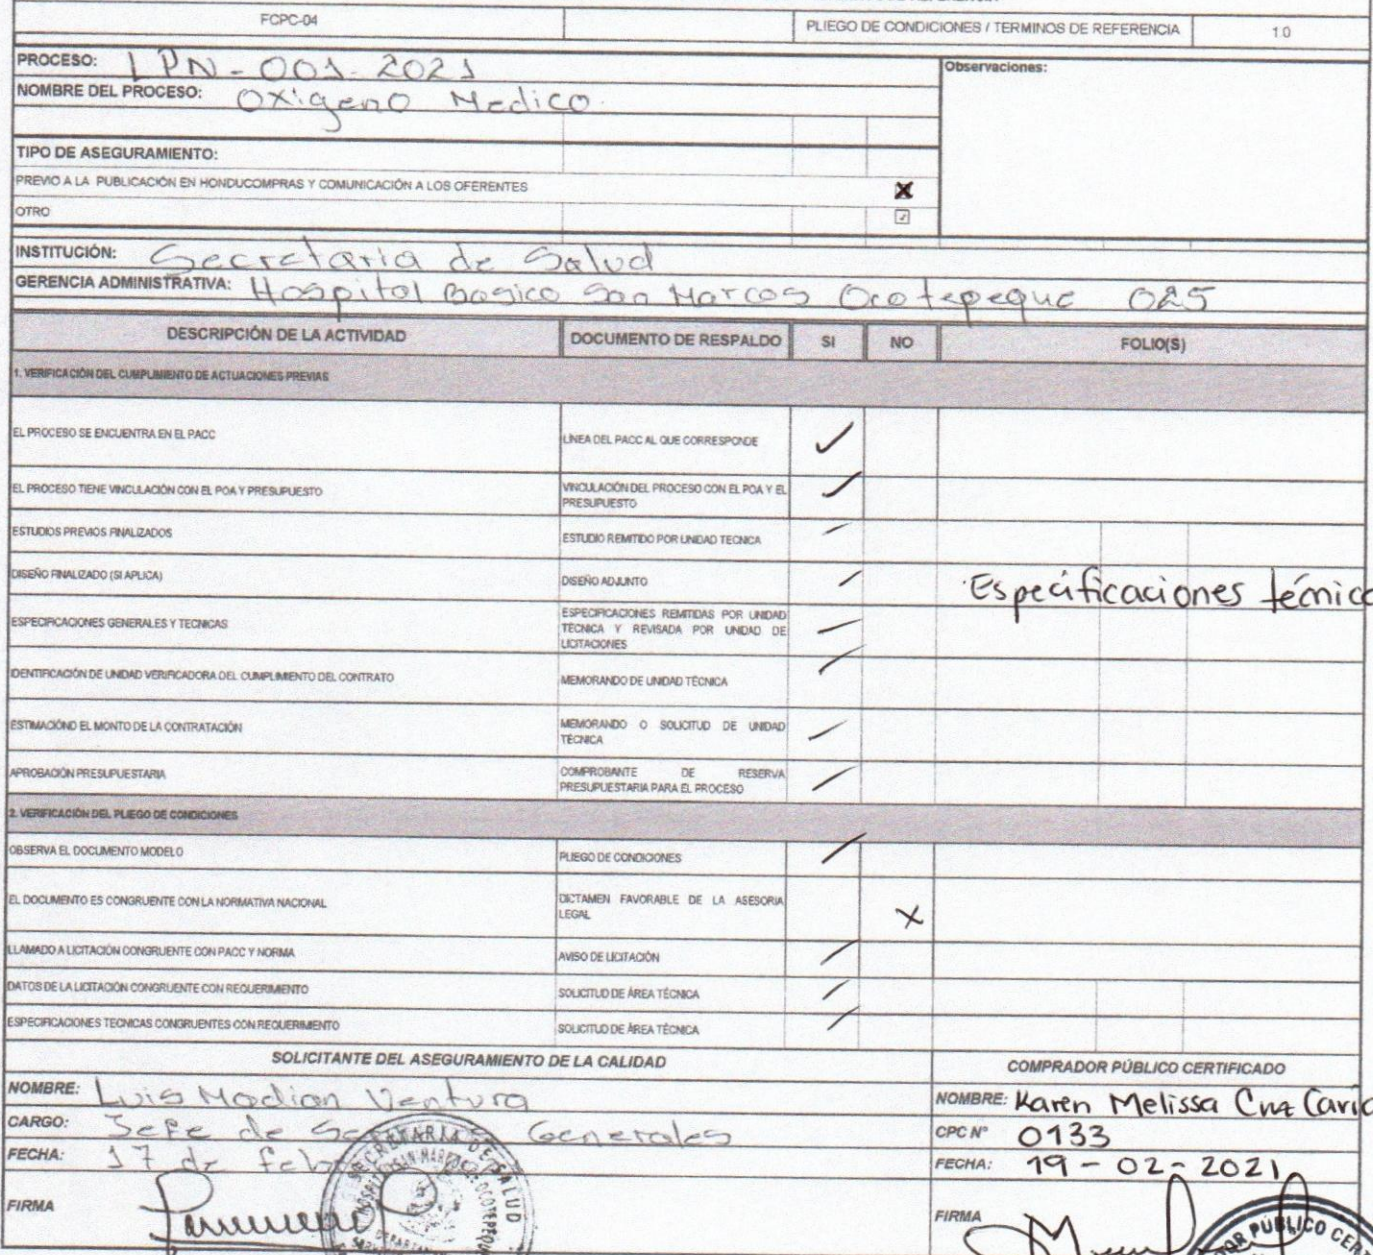 FCPC-04
PLIEGO DE CONDICIONES / TERMINOS DE REFERENCIA 1.0
PROCESO: LPN-001-2021
Observaciones:
NOMBRE DEL PROCESO: Oxigeno Medico
TIPO DE ASEGURAMIENTO:
PREVIO A LA PUBLICACIÓN EN HONDUCOMPRAS Y COMUNICACIÓN A LOS OFERENTES X
OTRO ✓
INSTITUCIÓN: Secretaria de Salud
GERENCIA ADMINISTRATIVA: Hospital Basico San Marcos Ocotepeque 025
DESCRIPCIÓN DE LA ACTIVIDAD DOCUMENTO DE RESPALDO SI NO FOLIO(S)
1. VERIFICACIÓN DEL CUMPLIMIENTO DE ACTUACIONES PREVIAS
EL PROCESO SE ENCUENTRA EN EL PACC LÍNEA DEL PACC AL QUE CORRESPONDE ✓
EL PROCESO TIENE VINCULACIÓN CON EL POA Y PRESUPUESTO VINCULACIÓN DEL PROCESO CON EL POA Y EL
PRESUPUESTO
ESTUDIOS PREVIOS FINALIZADOS ESTUDIO REMITIDO POR UNIDAD TECNICA
DISEÑO FINALIZADO (SI APLICA) DISEÑO ADJUNTO Especificaciones técnic
ESPECIFICACIONES GENERALES Y TECNICAS ESPECIFICACIONES REMITIDAS POR UNIDAD
TÉCNICA Y REVISADA POR UNIDAD DE
LICITACIONES
IDENTIFICACIÓN DE UNIDAD VERIFICADORA DEL CUMPLIMIENTO DEL CONTRATO MEMORANDO DE UNIDAD TÉCNICA
ESTIMACIÓND EL MONTO DE LA CONTRATACIÓN MEMORANDO O SOLICITUD DE UNIDAD
TÉCNICA
APROBACIÓN PRESUPUESTARIA COMPROBANTE DE RESERVA
PRESUPUESTARIA PARA EL PROCESO
2. VERIFICACIÓN DEL PLIEGO DE CONDICIONES
OBSERVA EL DOCUMENTO MODELO PLIEGO DE CONDICIONES
EL DOCUMENTO ES CONGRUENTE CON LA NORMATIVA NACIONAL DICTAMEN FAVORABLE DE LA ASESORIA
LEGAL X
LLAMADO A LICITACIÓN CONGRUENTE CON PACC Y NORMA AVISO DE LICITACIÓN
DATOS DE LA LICITACIÓN CONGRUENTE CON REQUERIMIENTO SOLICITUD DE ÁREA TÉCNICA
ESPECIFICACIONES TECNICAS CONGRUENTES CON REQUERIMIENTO SOLICITUD DE ÁREA TÉCNICA
SOLICITANTE DEL ASEGURAMIENTO DE LA CALIDAD
NOMBRE: Luis Madian Ventura
CARGO: Jefe de Se Generales
FECHA: 17 de feb
FIRMA
SECRETARIA DE SALUD
COMPRADOR PÚBLICO CERTIFICADO
NOMBRE: Karen Melissa Cruz
CPC N° 0133
FECHA: 19-02-2021
FIRMA
PÚBLICO CERT